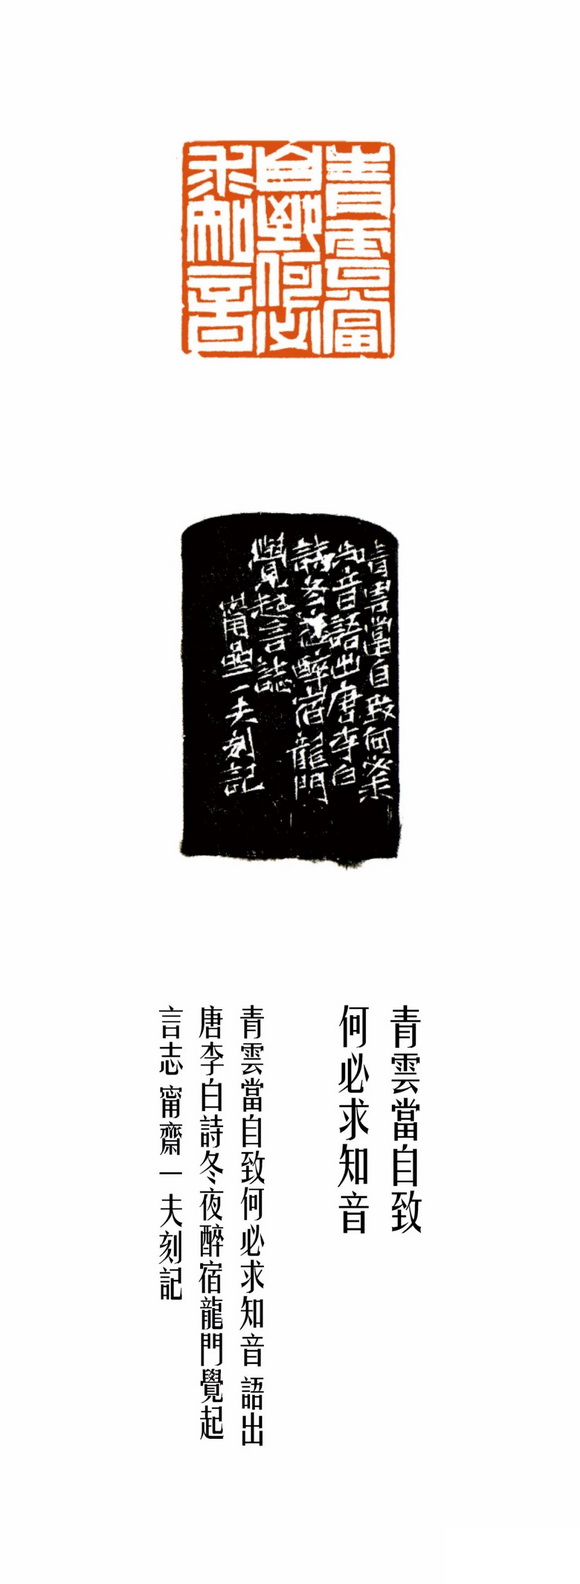 青雲當
自致何必
求知音
青雲當自致何必求
知音語出唐李白
詩冬夜醉宿龍門
覺起言誌
甯齋一夫刻記
青雲當自致
何必求知音
青雲當自致何必求知音 語出
唐李白詩冬夜醉宿龍門覺起
言志 甯齋一夫刻記